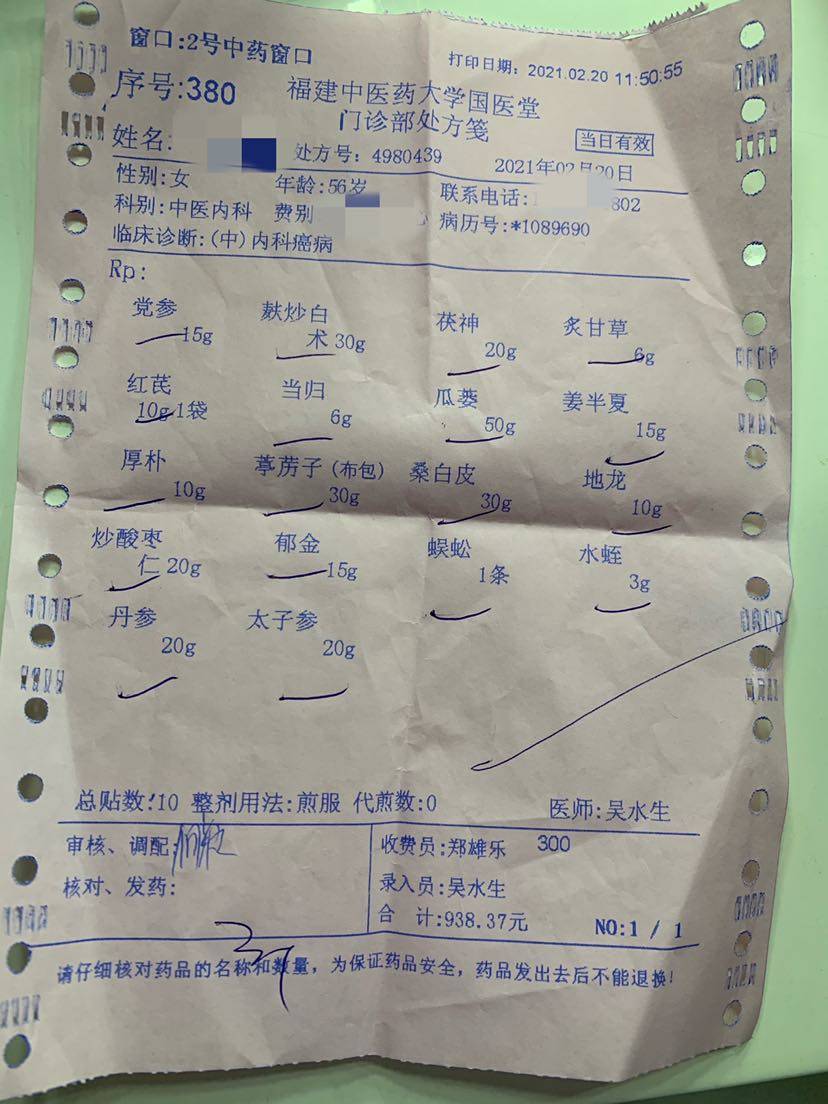 窗口:2号中药窗口
打印日期: 2021.02.20 11:50:55
序号:380
福建中医药大学国医堂
门诊部处方笺
当日有效
姓名:
处方号: 4980439
2021年02月20日
性别:女
年龄:56岁
联系电话:
802
科别:中医内科
费别
病历号:*1089690
临床诊断:(中)内科癌病
Rp:
党参
麸炒白
茯神
炙甘草
15g
术 30g
20g
6g
红芪
当归
瓜蒌
姜半夏
10g 1袋
6g
50g
15g
厚朴
葶苈子(布包)
桑白皮
地龙
10g
30g
30g
10g
炒酸枣
郁金
蜈蚣
水蛭
仁 20g
15g
1条
3g
丹参
太子参
20g
20g
总贴数:10 整剂用法:煎服 代煎数:0
医师:吴水生
审核、调配:
收费员:郑雄乐
300
核对、发药:
录入员:吴水生
合 计:938.37元
NO:1 / 1
请仔细核对药品的名称和数量，为保证药品安全，药品发出去后不能退换!